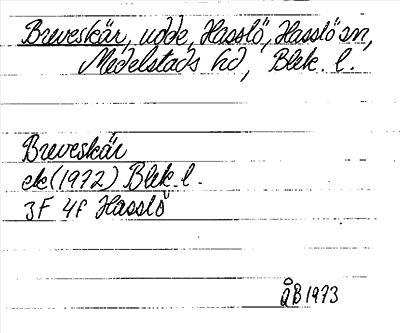 Breveskär, udde, Hasslö, Hasslö sn,
Medelstads hd, Blek. l.
Breveskär
ek (1972) Blek. l.
3F 4f Hasslö
ÅB 1973